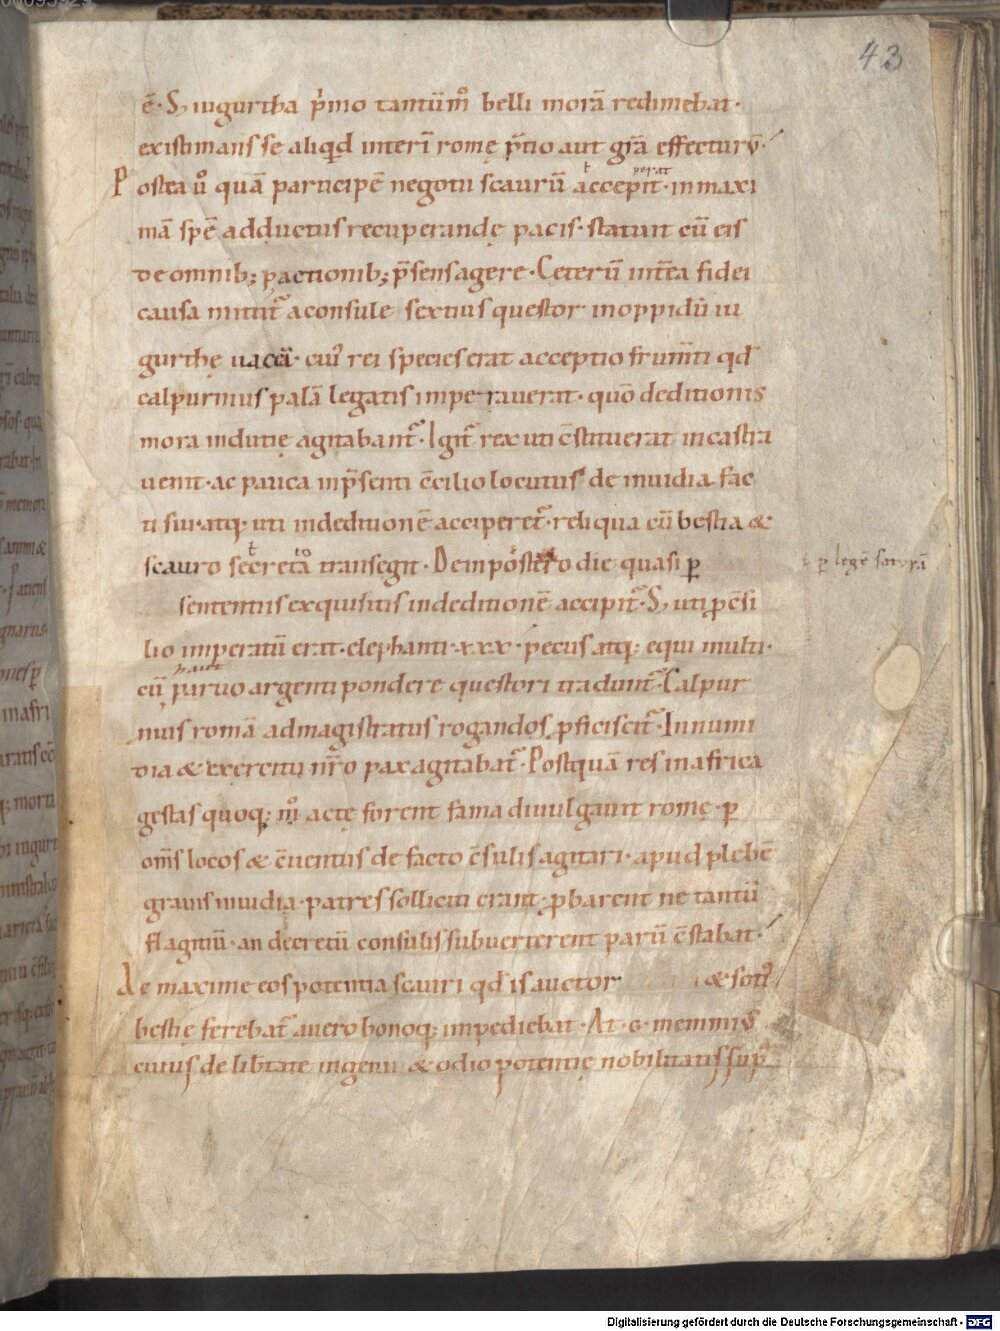 43
ē· S; iugurtha p̄mo tantūm̊ belli morā redimebat·
existimans se aliqid interī romę p̄tio aut gr̄a effecturū·
Postea ů quā participē negotii scaurū accepit· in maxi
perat
mā spē adductus recuperandę pacis· statuit cū eis
de omnib; pactionib; p̄sens agere· Ceterū int̄ea fidei
causa mittit̄ a consule sextius questor in oppidū iu
gurthę uaccā· cui᾽ rei species erat acceptio frum̄ti qd̄
calpurnius palā legatis imperauerat· quō deditionis
mora indutię agitabant̄· Igit̄ rex uti c̄stituerat in castra
uenit· ac pauca in p̄senti c̄cilio locutus de inuidia fac
ti sui· atq; uti in deditionē acciperet̄· reliqua cū bestia &
scauro secreta transegit· Dein postero die quasi ꝑ
ꝑ legē satyrā
sententiis exquisitis in deditionē accipit̄· S; uti ꝓ c̄si
lio imperatū erat· elephanti·xxx· pecus atq; equi multi·
cū paruo argenti pondere questori tradunt̄· Calpur
nius romā ad magistratus rogandos ꝓficiscit̄· In numi
dia & exercitu nr̄o pax agitabat̄· Postquā res in africa
gestas quoq; m̊ actę forent fama diuulgauit romę· ꝑ
om̄s locos & c̄uentus de facto c̄sulis agitari· apud plebē
grauis inuidia· patres solliciti erant· ꝓbarent ne tantū
flagitiū· an decretū consulis subuerterent parū c̄stabat·
Ac maxime eos potentia scauri qd̄ is auctor & soti᾽
bestię ferebat̄ a uero bonoq; impediebat· At· G· memmius
cuius de lib̄tate ingenii & odio potentię nobilitatis sup̄
Digitalisierung gefördert durch die Deutsche Forschungsgemeinschaft - DFG